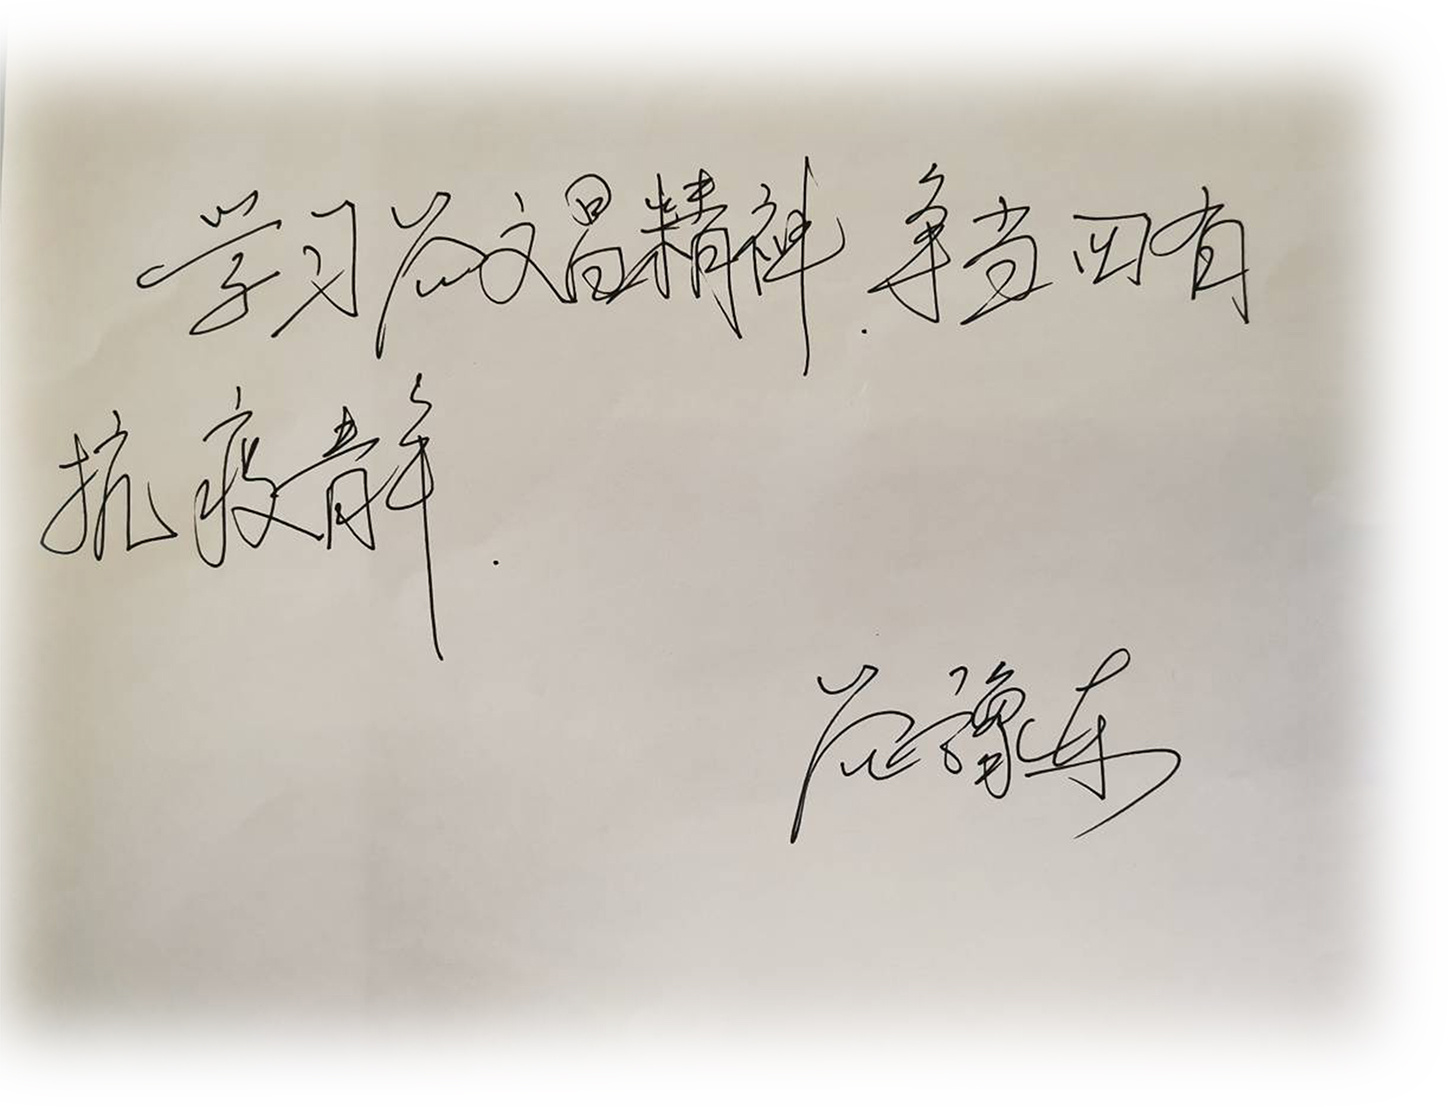 学习谷文昌精神.争当四有
抗疫青年.
谷豫东